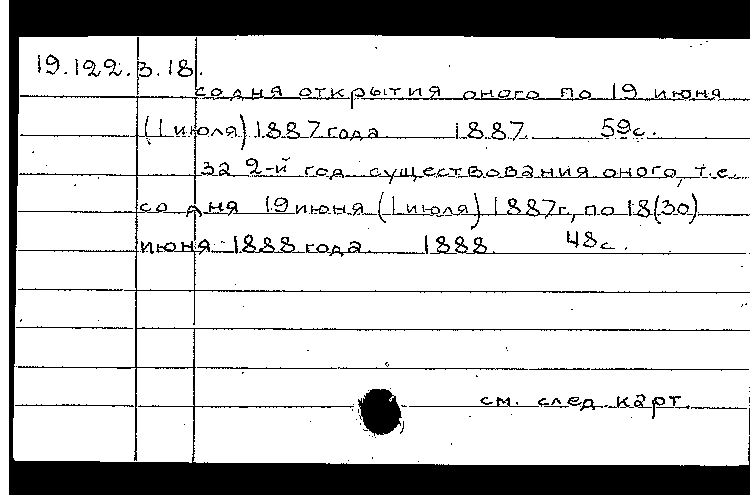 19.122.3.18.
со дня открытия оного по 19 июня
(1 июля) 1887 года 1887. 59с.
за 2-й год существования оного, т.е.
со дня 19 июня (1 июля) 1887г, по 18(30)
июня 1888 года. 1888. 48с.
см. след. карт.